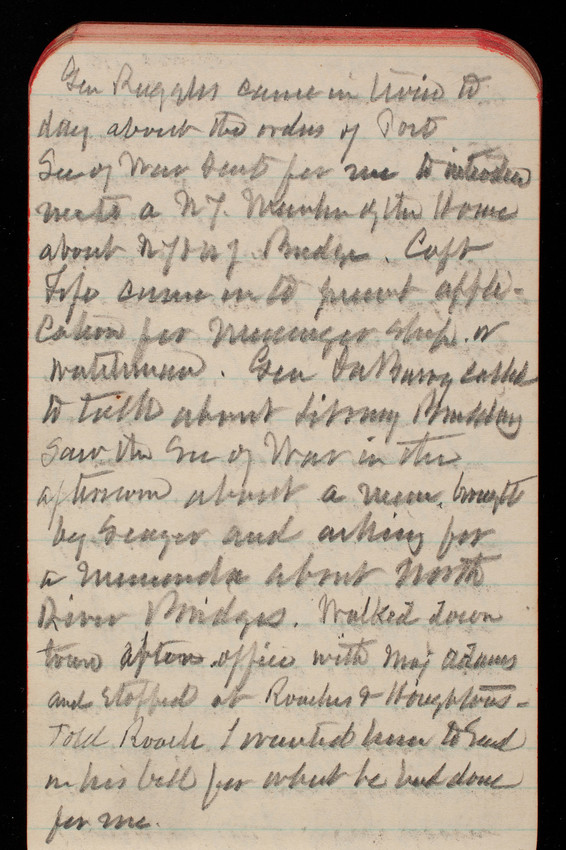 Gen Ruggles came in twice to
day about the orders of
Sec of War Dept for me to introduce
a N.J. Member of the House
about NY & NJ Bridge. Capt
Fife came in to present appli-
cation for Messenger ship. or
watchman. Gen DuBarry called
to talk about Library Building
Saw the Sec of War in the
afternoon about a mem. brought
by Seager and asking for
a memoranda about North
River Bridges. Walked down
town after office with Maj Adams
and stopped at Roaches & Houghtons -
Told Roach I wanted him to send
in his bill for what he had done
for me.